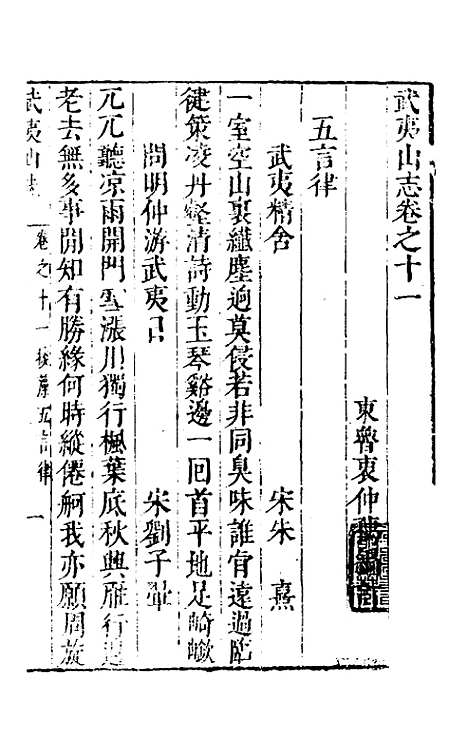 武夷山志卷之十一
東魯衷仲
五言律
武夷精舍 宋朱熹
一室空山裏纖塵逈莫侵若非同臭味誰肯遠過臨
徤策凌丹壑清詩動玉琴谿邊一回首平地足崎嶔
問明仲游武夷日 宋劉子翬
兀兀聽凉雨開門雪漲川獨行楓葉底秋興雁行邊
老去無多事閒知有勝緣何時縱倦舸我亦願周旋
武夷山志 卷之十一 五言律 一